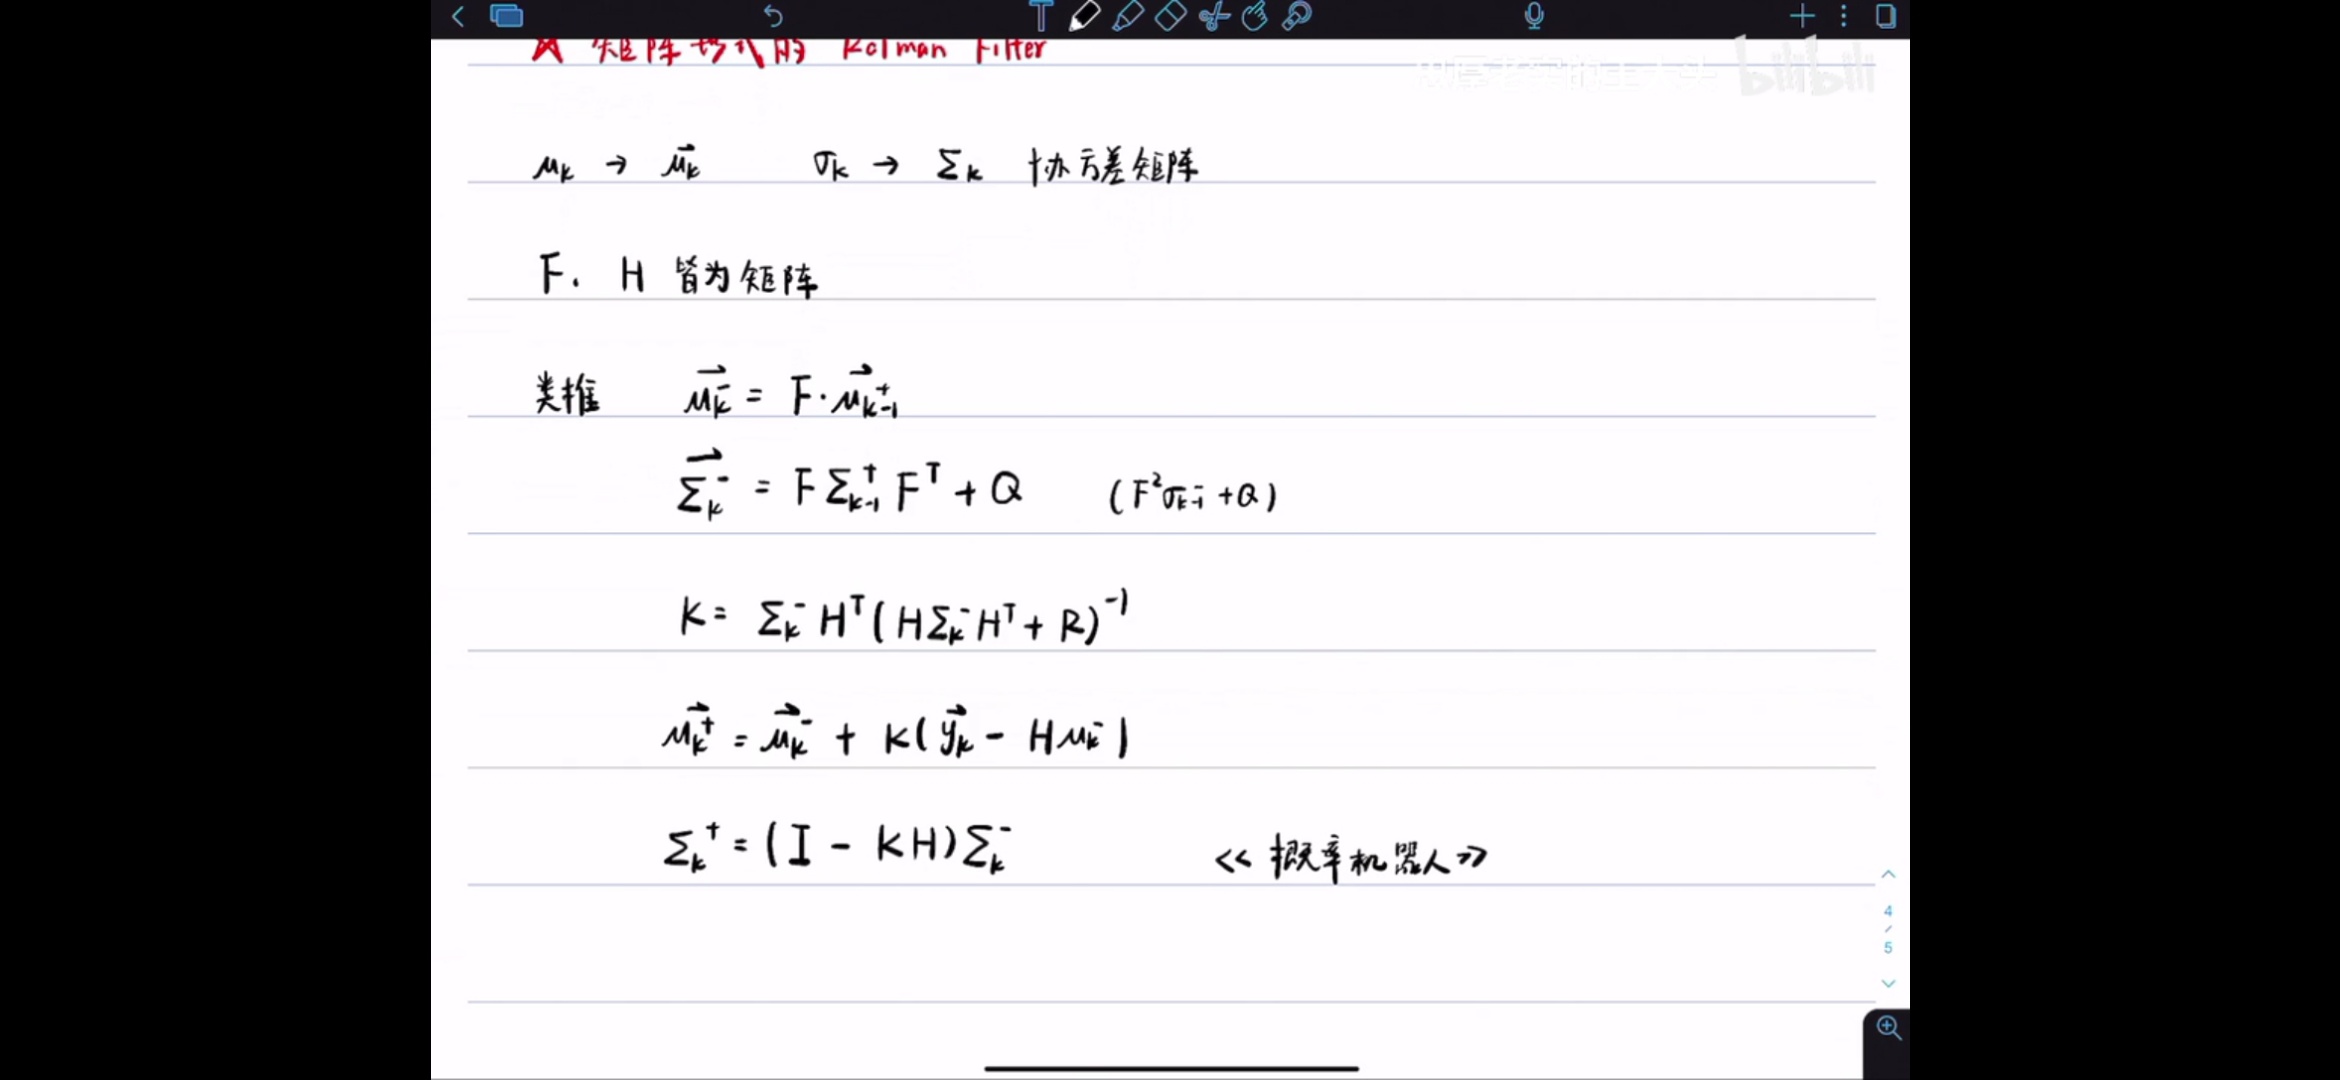 矩阵形式的 Kalman Filter
bilibili
μk → μ⃗k σk → Σk 协方差矩阵
F. H 皆为矩阵
类推 μ⃗k⁻ = F·μ⃗k-1⁺
Σ⃗k⁻ = FΣk-1⁺Fᵀ + Q (F²σk-1⁻ + Q)
K = Σk⁻Hᵀ(HΣk⁻Hᵀ + R)⁻¹
μ⃗k⁺ = μ⃗k⁻ + K(y⃗k - Hμk⁻)
Σk⁺ = (I - KH)Σk⁻ << 概率机器人 >>
4
/
5